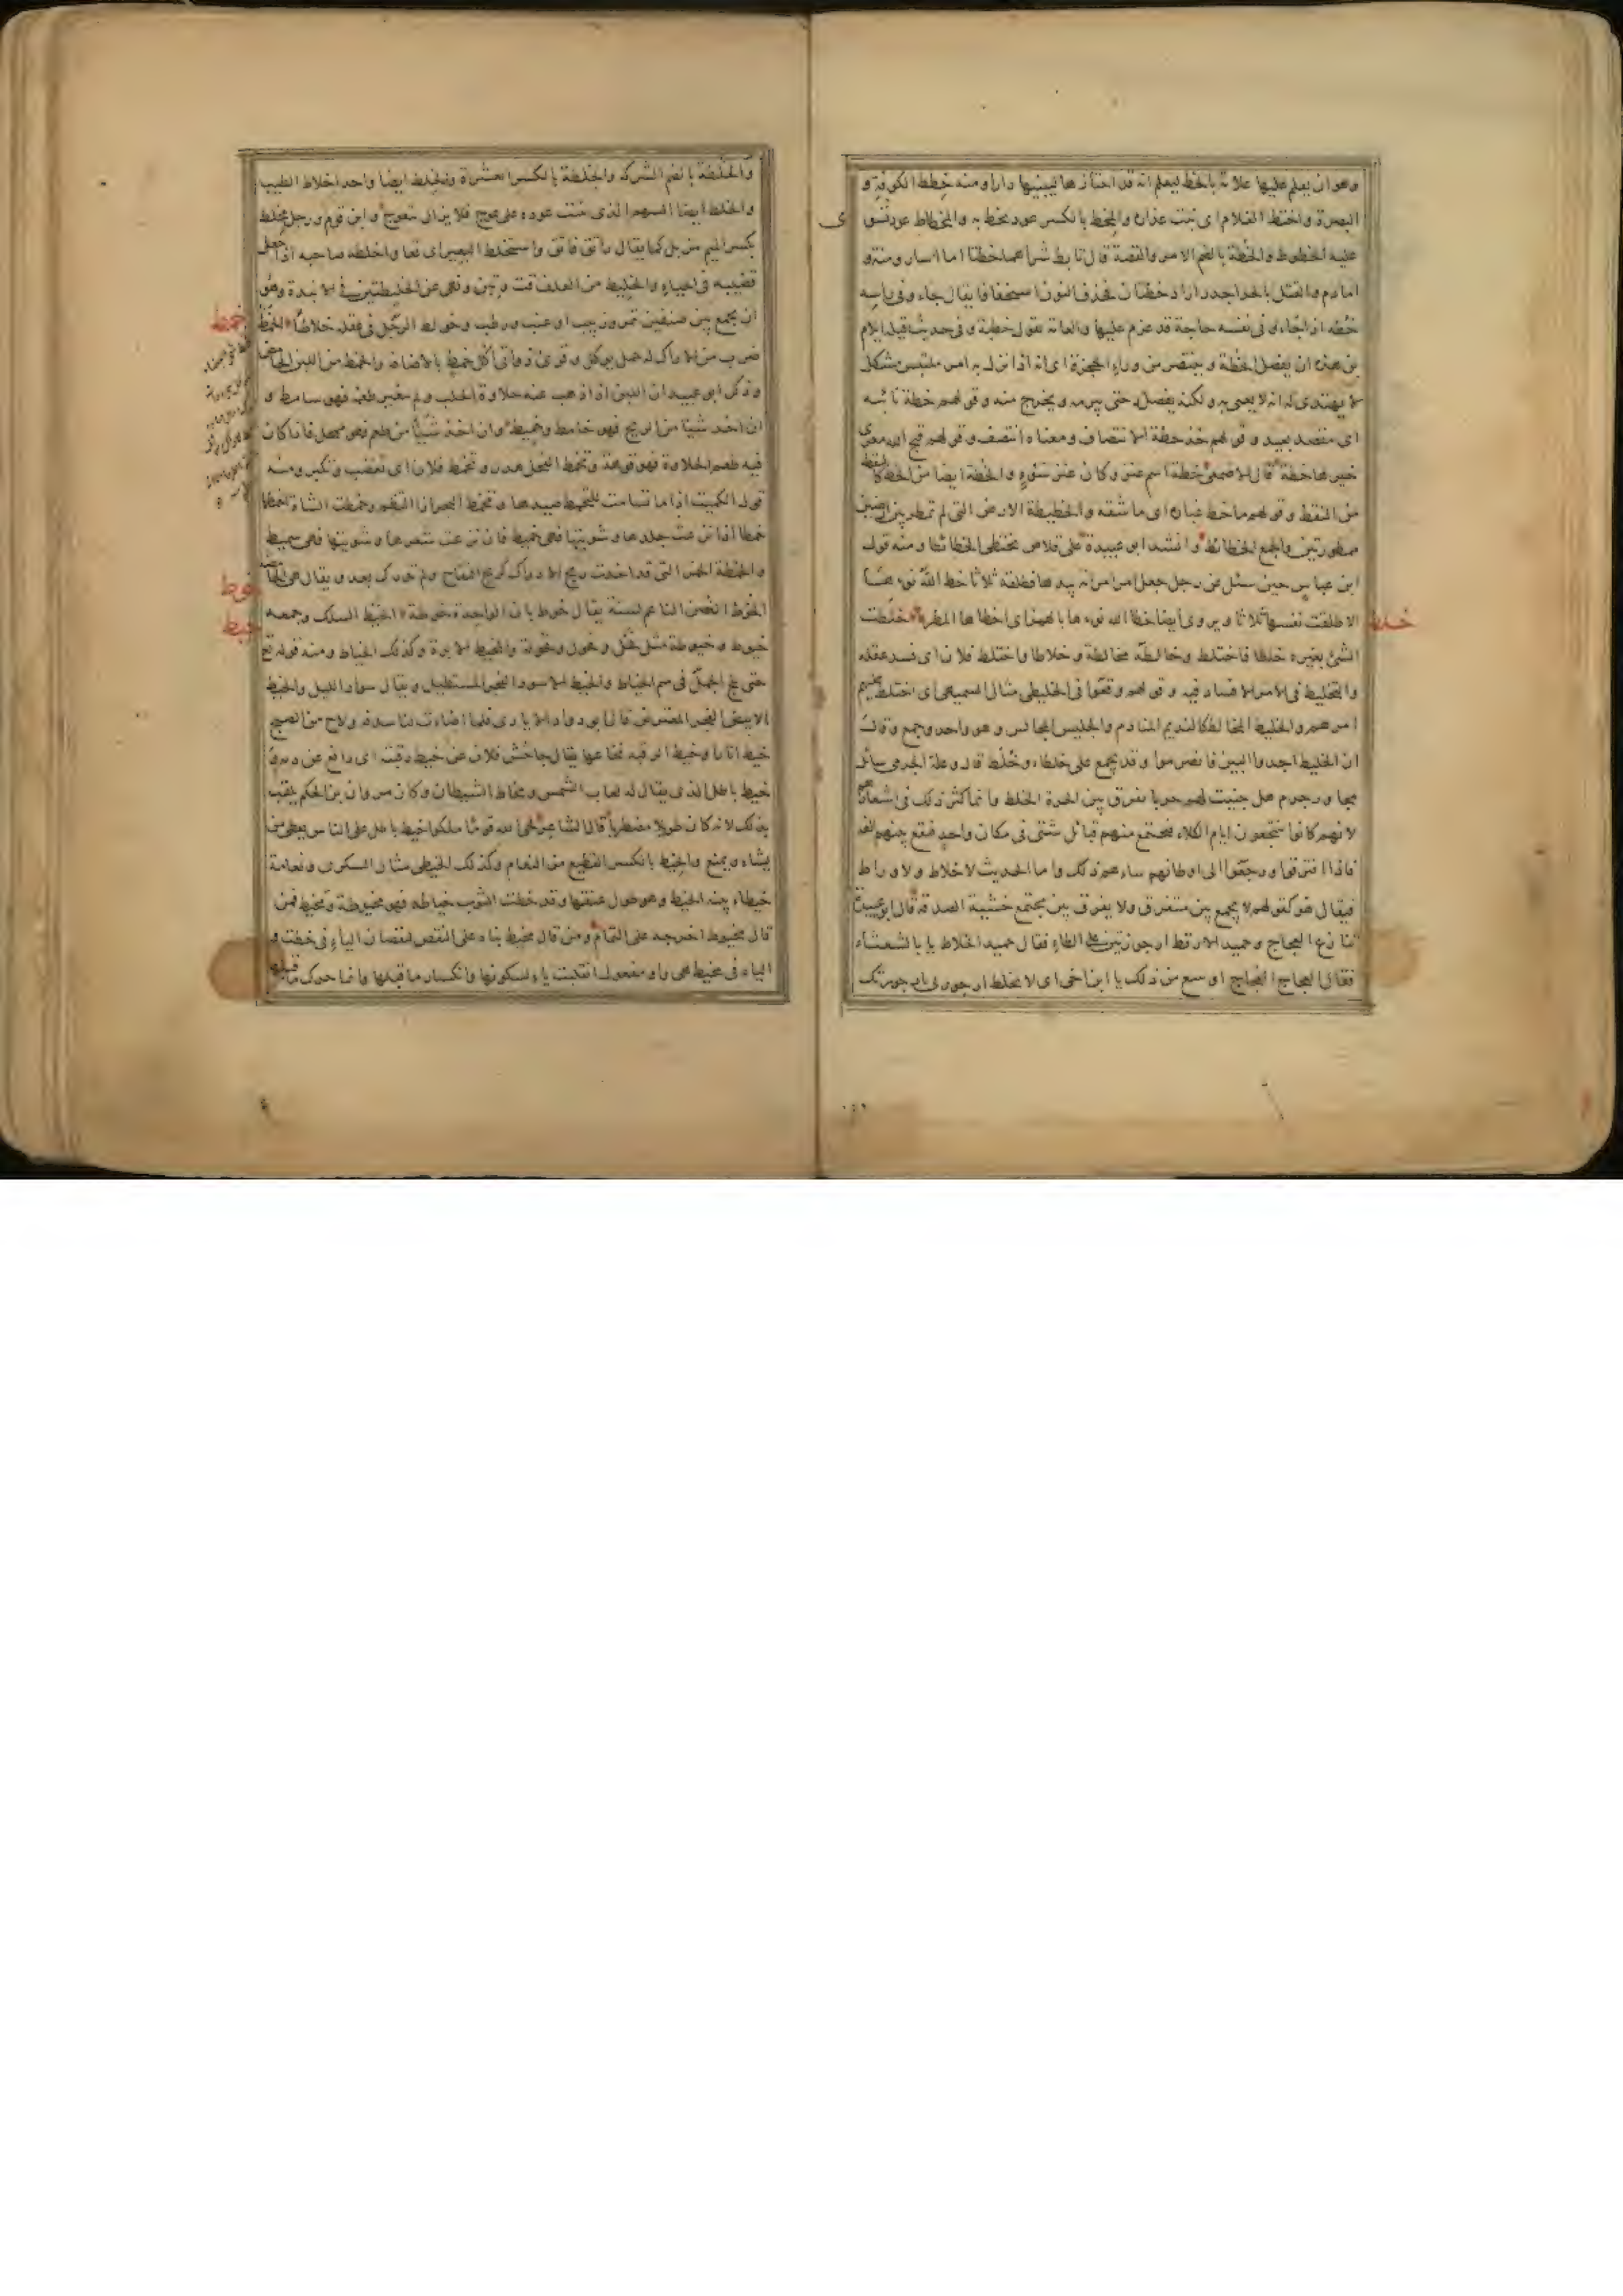 وهو ان يعلم عليها علامة بالخط ليعلم انه قد احتازها ليبنيها دارا ومنه خطط الكوفة و
البصرة واختط الغلام اى نبت عذاره والمخط بالكسر عود يخط به والمخطاط عود تسوى
عليه الخطوط والخطة بالضم الامر والقصة قال تابط شرا هما خطتا اما اسار ومنة و
اما دم والقتل بالحر اجدر اراد خطتان فحذف النون استخفافا يقال جاء وفى راسه
خطة اذا جاء وفى نفسه حاجة قد عزم عليها والعامة تقول خطية وفى حديث قيلة ايلام
بن هذه ان يفصل الخطة وينتصر من وراء الحجزة اى انه اذا نزل به امر ملتبس مشكل
لا يهتدى له انه لا يعيى به ولكنه يفصله حتى يبرمه ويخرج منه وقولهم خطة نائية
اى مقصد بعيد وقولهم خذ خطة الانتصاف ومعناه انتصف وقولهم قبح الله معزى
خيرها خطة قال الاصمعى خطة اسم عنز وكان عنز سوء والخطة ايضا من الخط كالنقطة
من النقط وقولهم ما خط غباره اى ما شقه والخطيطة الارض التى لم تمطر بين ارضين
ممطورتين والجمع الخطائط وانشد ابو عبيدة على قلاص تختطى الخطائطا ومنه قول
ابن عباس حين سئل عن رجل جعل امر امراته بيدها فطلقته ثلاثا خط الله نوءها
الا طلقت نفسها ثلاثا ويروى ايضا خطا الله نوءها بالهمز اى اخطاها المطر خلطت
خلط
الشئ بغيره خلطا فاختلط وخالطه مخالطة وخلاطا واختلط فلان اى فسد عقله
والتخليط فى الامر الافساد فيه وقولهم وقعوا فى الخليطى مثال السميهى اى اختلط عليهم
امرهم والخليط المخالط كالنديم المنادم والجليس المجالس وهو واحد وجمع وقال
ان الخليط اجدوا البين فانصرموا وقد يجمع على خلطاء وخلط قال وعلة الجرمى سائل
مجاور جرم هل جنيت لهم حربا تفرق بين الجيرة الخلط وانما كثر ذلك فى اشعارهم
لانهم كانوا ينتجعون ايام الكلاء فيجتمع منهم قبائل شتى فى مكان واحد فتقع بينهم الفة
فاذا افترقوا ورجعوا الى اوطانهم ساءهم ذلك واما الحديث لا خلاط ولا وراط
فيقال هو كقولهم لا يجمع بين متفرق ولا يفرق بين مجتمع خشية الصدقة قال ابو عبيدة
تنازع العجاج وحميد الارقط ارجوزتين على الطاء فقال حميد الخلاط يا با الشعثاء
فقال العجاج الفجاج اوسع من ذلك يا ابن اخى اى لا تخلط ارجوزتى بارجوزتك
والخلطة بالضم الشركة والخلطة بالكسر العشرة والخلط ايضا واحد اخلاط الطيب
والخلط ايضا السهم الذى ينبت عوده على عوج فلا يزال يتعوج وابن قوم ورجل مخلط
بكسر الميم مزيل كما يقال راتق فاتق واستخلط البعير اى قعا واخلطه صاحبه اذا جعل
قضيبه فى الحياء والخليط من العلف قت وتبن ونهى عن الخليطين فى الانبذة وهو
ان يجمع بين صنفين تمر وزبيب او عنب ورطب وخولط الرجل فى عقله خلاطا الخمط
خمط
ضرب من الاراك له حمل يوكل وقرئ ذواتى اكل خمط بالاضافة والخمط من اللبن الحامض
وذكر ابو عبيد ان اللبن اذا ذهب عنه حلاوة الحلب ولم يتغير طعمه فهو سامط و
ان اخذ شيئا من الريح فهو خامط وخميط وان اخذ شيئا من طعم فهو ممحل فاذا كان
فيه طعم الحلاوة فهو قوهة وتخمط الفحل هدر وتخمط فلان اى تغضب وتكبر ومنه
قول الكميت اذا ما تسامت للتخمط صيدها وتخمط البحر اذا التطم وخمطت الشاة اخمطها
خمطا اذا نزعت جلدها وشويتها فهى خميط فان نزعت شعرها وشويتها فهى سميط
والخمطة الخمر التى قد اخذت ريح الادراك كريح التفاح ولم تدرك بعد ويقال هى الحامضة
الخوط الغصن الناعم لسنة يقال خوط بان الواحدة خوطة الخيط السلك وجمعه
خوط
خيط
خيوط وخيوطة مثل فحل وفحول وفحولة والمخيط الابرة وكذلك الخياط ومنه قوله تع
حتى يلج الجمل فى سم الخياط والخيط الاسود الفجر المستطيل ويقال سواد الليل والخيط
الابيض الفجر المعترض قال ابو دواد الايادى فلما اضاءت لنا سدفة ولاح من الصبح
خيط انارا وخيط الرقبة نخاعها يقال جاحش فلان عن خيط رقبته اى دافع عن دمه و
خيط باطل الذى يقال له لعاب الشمس ومخاط الشيطان وكان مروان بن الحكم يلقب
بذلك لانه كان طويلا مضطربا قال الشاعر لحى الله قوما ملكوا خيط باطل على الناس يعطى من
يشاء ويمنع والخيط بالكسر القطيع من النعام وكذلك الخيطى مثال السكرى ونعامة
خيطاء بينة الخيط وهو طول عنقها وقد خطت الثوب خياطة فهو مخيوط ومخيط فمن
قال مخيوط اخرجه على التمام ومن قال مخيط بناه على النقص لنقصان الياء فى خطت و
الياء فى مخيط هى واو مفعول انقلبت ياء لسكونها وانكسار ما قبلها وانما حرك ما قبلها